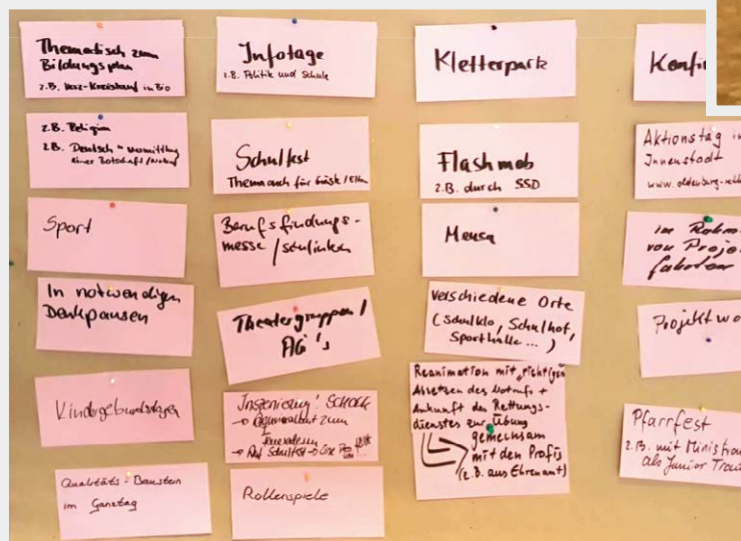 Thematisch zum
Bildungsplan
z.B. Herz-Kreislauf in Bio
z.B. Religion
z.B. Deutsch =
einer Botschaft /
Sport
In notwendigen
Denkpausen
Kindergeburtstagen
Qualitäts-Baustein
im Ganztag
Infotage
z.B. Politik und Schule
Schulfest
Thema auch für Gäste /
Berufsfindungs-
messe /
Theatergruppen /
AG's
Inszenierung:
Rollenspiele
Kletterpark
Flashmob
z.B. durch SSD
Mensa
Verschiedene Orte
(Schulklo, Schulhof,
Sporthalle ...)
Reanimation mit richtigen
Absetzen des Notrufs +
Ankunft des Rettungs-
dienstes zur Übung
gemeinsam
mit den Profis
(z.B. aus Ehrenamt)
Konfi
Aktionstag in
Innenstadt
im Rahm
von Proje
fahrten
Projektwo
Pfarrfest
z.B. mit Ministran
als Junior Trai